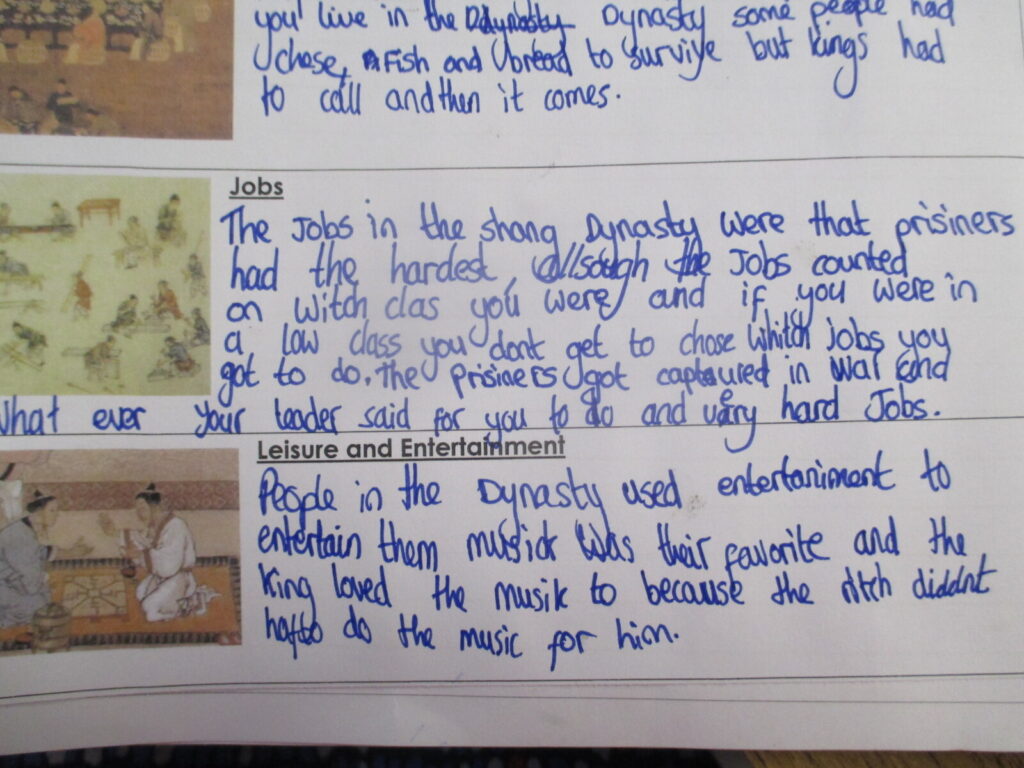 you live in the Dynasty some people had
chese, Fish and bread to survive but kings had
to call and then it comes.
Jobs
The Jobs in the shang Dynasty were that prisiners
had the hardest, allsough the Jobs counted
on witch clas you were, and if you were in
a low class you dont get to chose whitch jobs you
got to do. the prisiners got captured in war and
What ever your leader said for you to do and very hard Jobs.
Leisure and Entertainment
People in the Dynasty used entertaniment to
entertain them musick was their favorite and the
king loved the musik to because the ritch diddnt
hafto do the music for him.